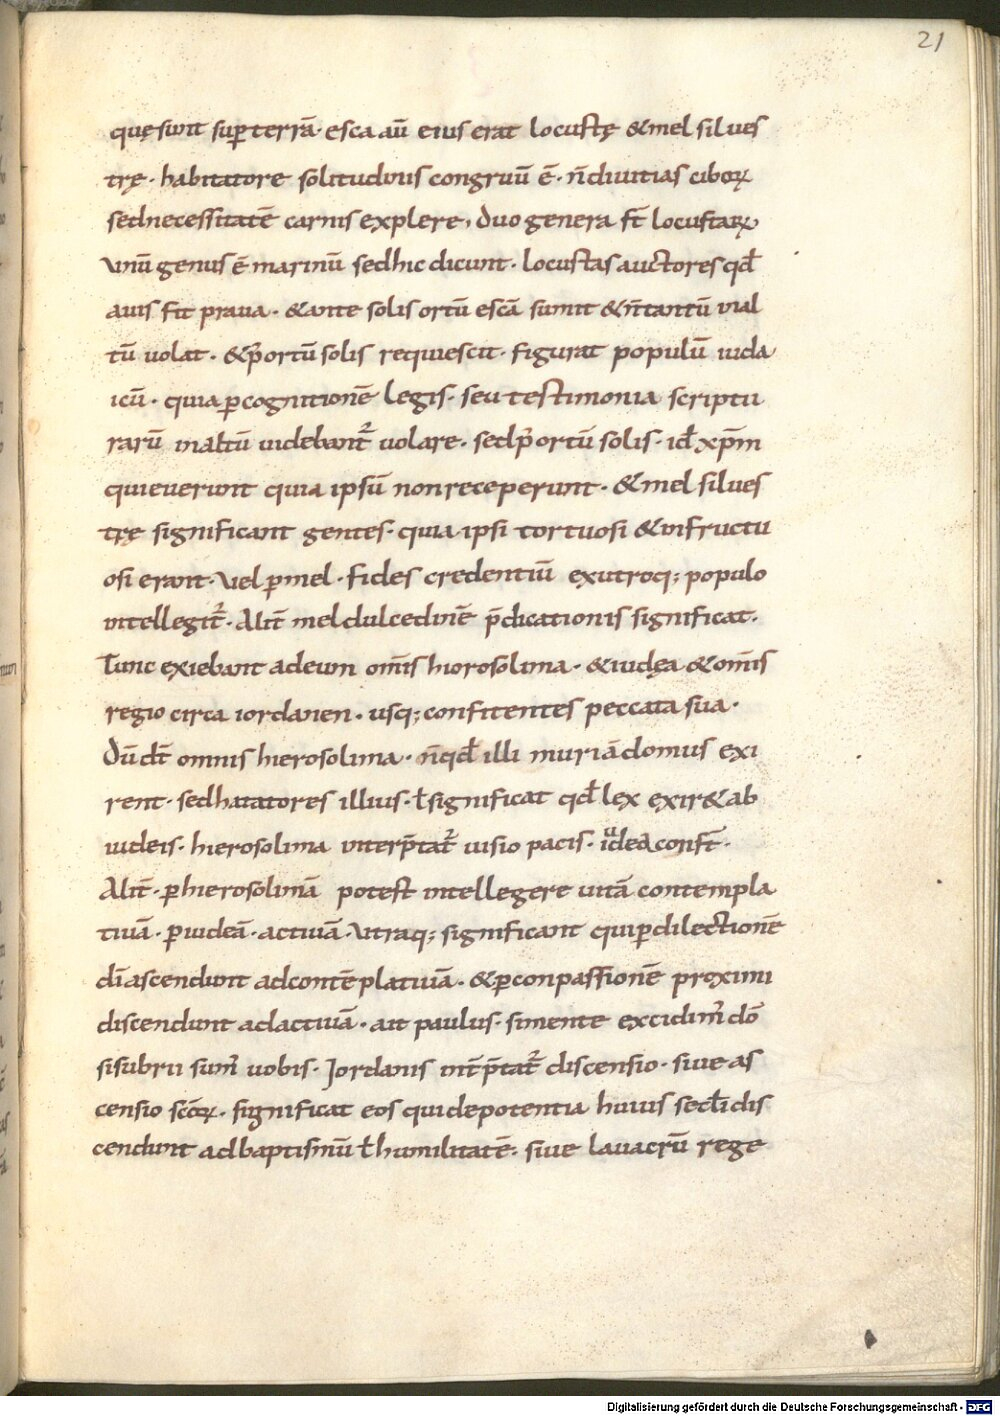 21
quęsunt sup terrā· esca aū eius erat locustę &mel silues
trę· habitatore solitudinis congruū ē· n̄ diuitias ciboꝝ
sed necessitatē carnis explere, duo genera fr̄ locustaꝝ
unū genus ē marinū sed hic dicunt· locustas auctores qđ
auis sit praua· &ante solis ortū escā sumit &n̄ tantū in al
tū uolat· &p̄ ortū solis requiescit· figurat populū iuda
icū· quia ꝑ cognitionē legis· seu testimonia scriptu
rarū in altū uidebant᷑ uolare· sed p̄ ortū solis· id̄ xp̄m
quieuerunt quia ipsū non receperunt· &mel silues
trę significant gentes· quia ipsi tortuosi &infructu
osi erant· Vel ꝑ mel· fides credentiū ex utroq; populo
intellegit᷑· Alit̄ mel dulcedinē p̄dicationis significat·
Tunc exiebant ad eum om̄is hiorosolima· &iudęa &om̄is
regio circa iordanen· usq; confitentes peccata sua·
Dū dt̄ omnis hierosolima· n̄ qđ illi muri ā domus exi
rent· sed hatatores illius· ł significat qđ lex exir& ab
iudeis· hierosolima interp̄tat᷑ uisio pacis· iudea conf̄·
Alit̄· ꝑ hierosolimā potest intellegere uitā contempla
tiuā· ꝑ iudeā· actiuā· Vtraq; significant qui ꝑ dilectionē
dī ascendunt ad contēplatiuā· &ꝑ conpassionē proximi
discendunt ad actiuā· ait paulus· si mente excidim᷑ dō
si subrii sum᷑ uobis· Jordanis int̄p̄tat᷑ discensio· siue as
censio scōꝝ· significat eos qui de potentia huius secłi dis
cendunt ad baptismū ł humilitatē· siue lauacrū rege
Digitalisierung gefördert durch die Deutsche Forschungsgemeinschaft - DFG